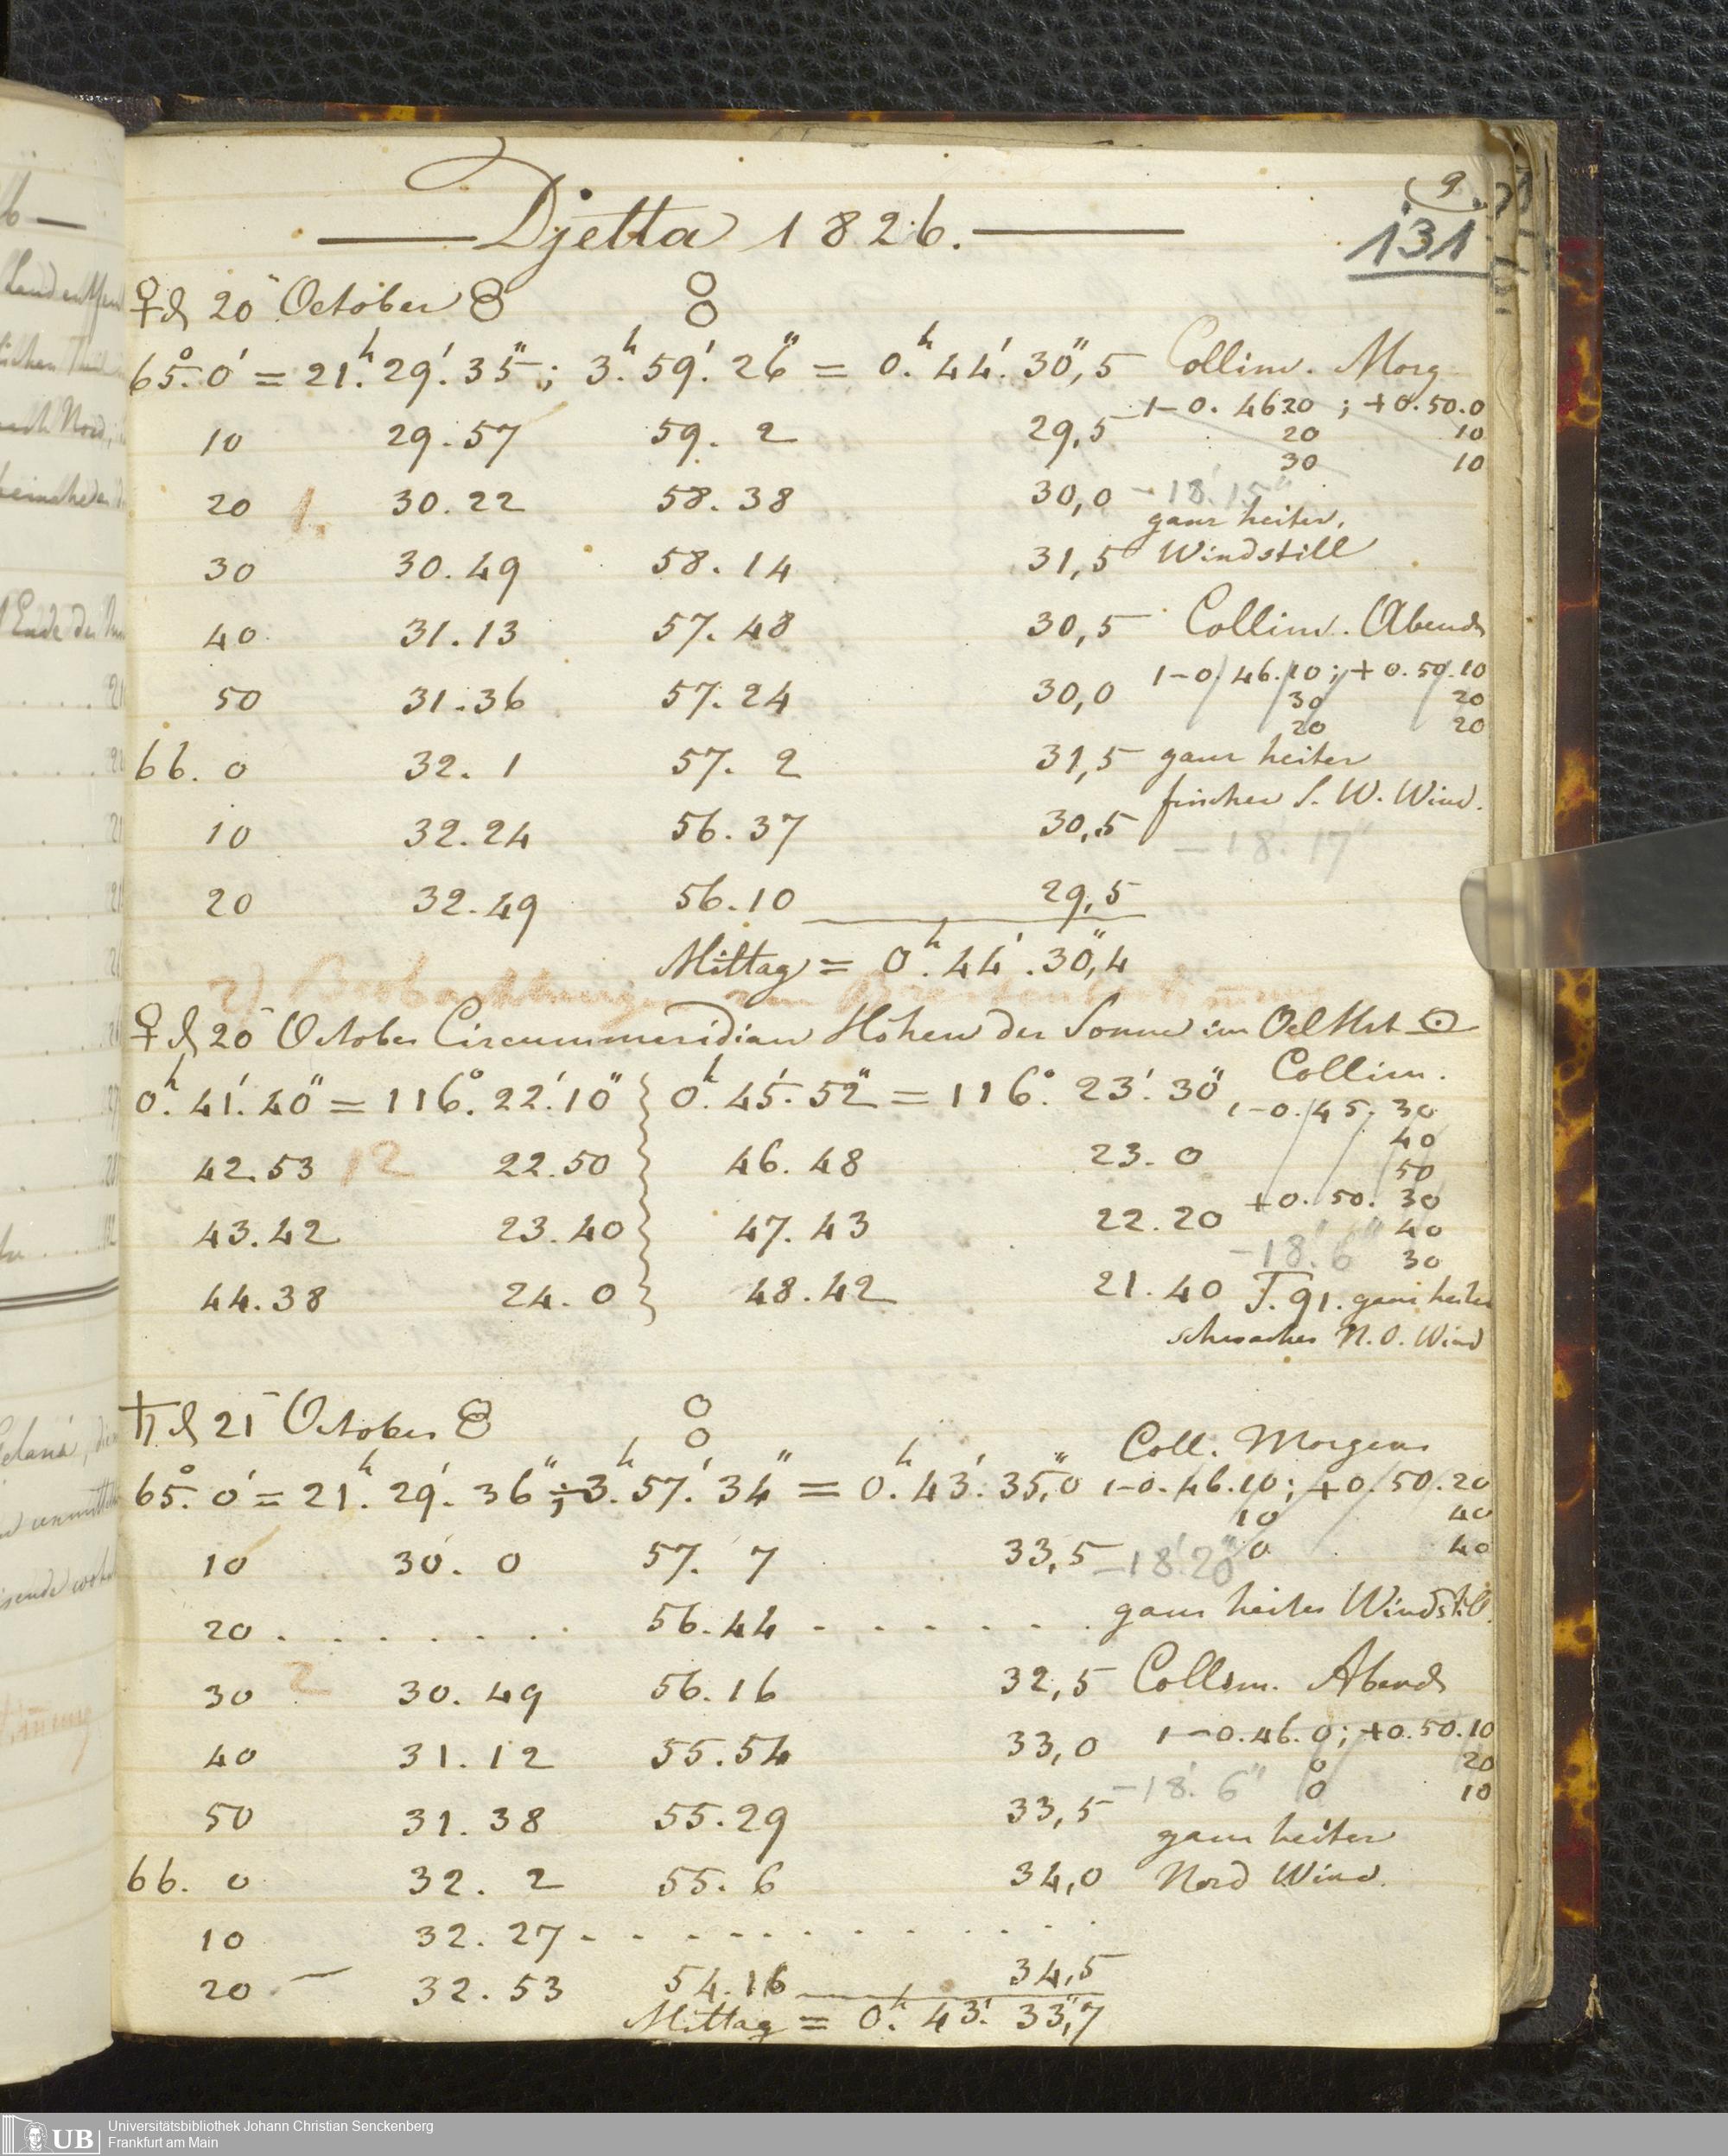 9
131
Djetta 1826.
♀ d 20 October
65°. 0' = 21h. 29'. 35"; 3h. 59'. 26" = 0h. 44'. 30",5 Collim. Morg
1-0. 4620 ; +0.50.0
10 29.57 59. 2 29,5 20 10
30 10
20 1. 30.22 58.38 30,0 -18'.15"
ganz heiter.
30 30.49 58.14 31,5 Windstill
40 31.13 57.48 30,5 Collim. Abends
1-0. 46.10; +0.50.10
50 31.36 57.24 30,0 30 20
20 20
66. 0 32. 1 57. 2 31,5 ganz heiter
frischer S. W. Wind.
10 32.24 56.37 30,5 -18'.17"
20 32.49 56.10 29,5
Mittag = 0h. 44'. 30",4
2) Beobachtungen zur Breitenbestimmung
♀ d 20 October Circummeridian Höhen der Sonne im Oel Hrt ☉
Collim.
0h. 41'. 40" = 116°. 22'. 10" 0h. 45'. 52" = 116°. 23'. 30" 1-0. 45. 30
40
42.53 12 22.50 46.48 23. 0 50
+0. 50. 30
43.42 23.40 47.43 22.20 40
-18'. 6" 30
44.38 24. 0 48.42 21.40 T. 91. ganz heiter
schwacher N.O. Wind
♄ d 21 October
Coll. Morgens
65°. 0' = 21h. 29'. 36"; 3h. 57'. 34" = 0h. 43'. 35",0 1-0.46.10; +0.50.20
10 40
10 30. 0 57. 7 33,5 -18'.20" 0 40
20 . . . . . . . 56.44 . . . . . . ganz heiter Windstill.
30 2 30.49 56.16 32,5 Collim. Abends
40 31.12 55.54 33,0 1-0.46.0; +0.50.10
0 20
-18'. 6" 0 10
50 31.38 55.29 33,5
ganz heiter
66. 0 32. 2 55. 6 34,0 Nord Wind.
10 32.27 . . . . . . . . . . .
20 32.53 54.16 34,5
Mittag = 0h. 43'. 33",7
UB Universitätsbibliothek Johann Christian Senckenberg
Frankfurt am Main